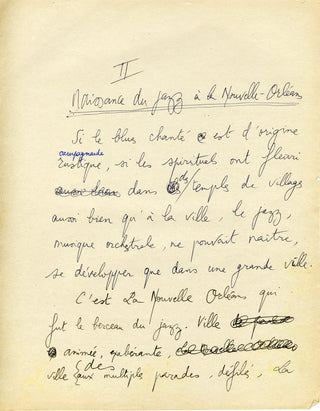 II
Naissance du jazz à la Nouvelle-Orléans
Si le blues chanté est d'origine
campagnarde
rustique, si les spirituels ont fleuri
dans ds temples de villages
aussi bien qu'à la ville, le jazz,
musique orchestrale, ne pouvait naître,
se développer que dans une grande ville.
C'est La Nouvelle Orléans qui
fut le berceau du jazz. Ville
animée, exubérante,
des
ville aux multiples parades, défilés, la